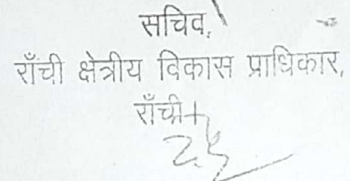 सचिव,
राँची क्षेत्रीय विकास प्राधिकार,
राँची